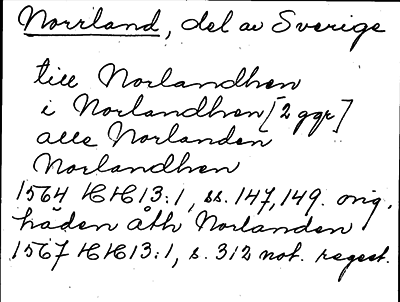 Norrland, del av Sverige
till Norlandhen
i Norlandhen [2 ggr]
alle Norlanden
Norlandhen
1564 HH13:1, ss. 147,149. orig.
häden åth Norlanden
1567 HH13:1, s. 312 not. regest.